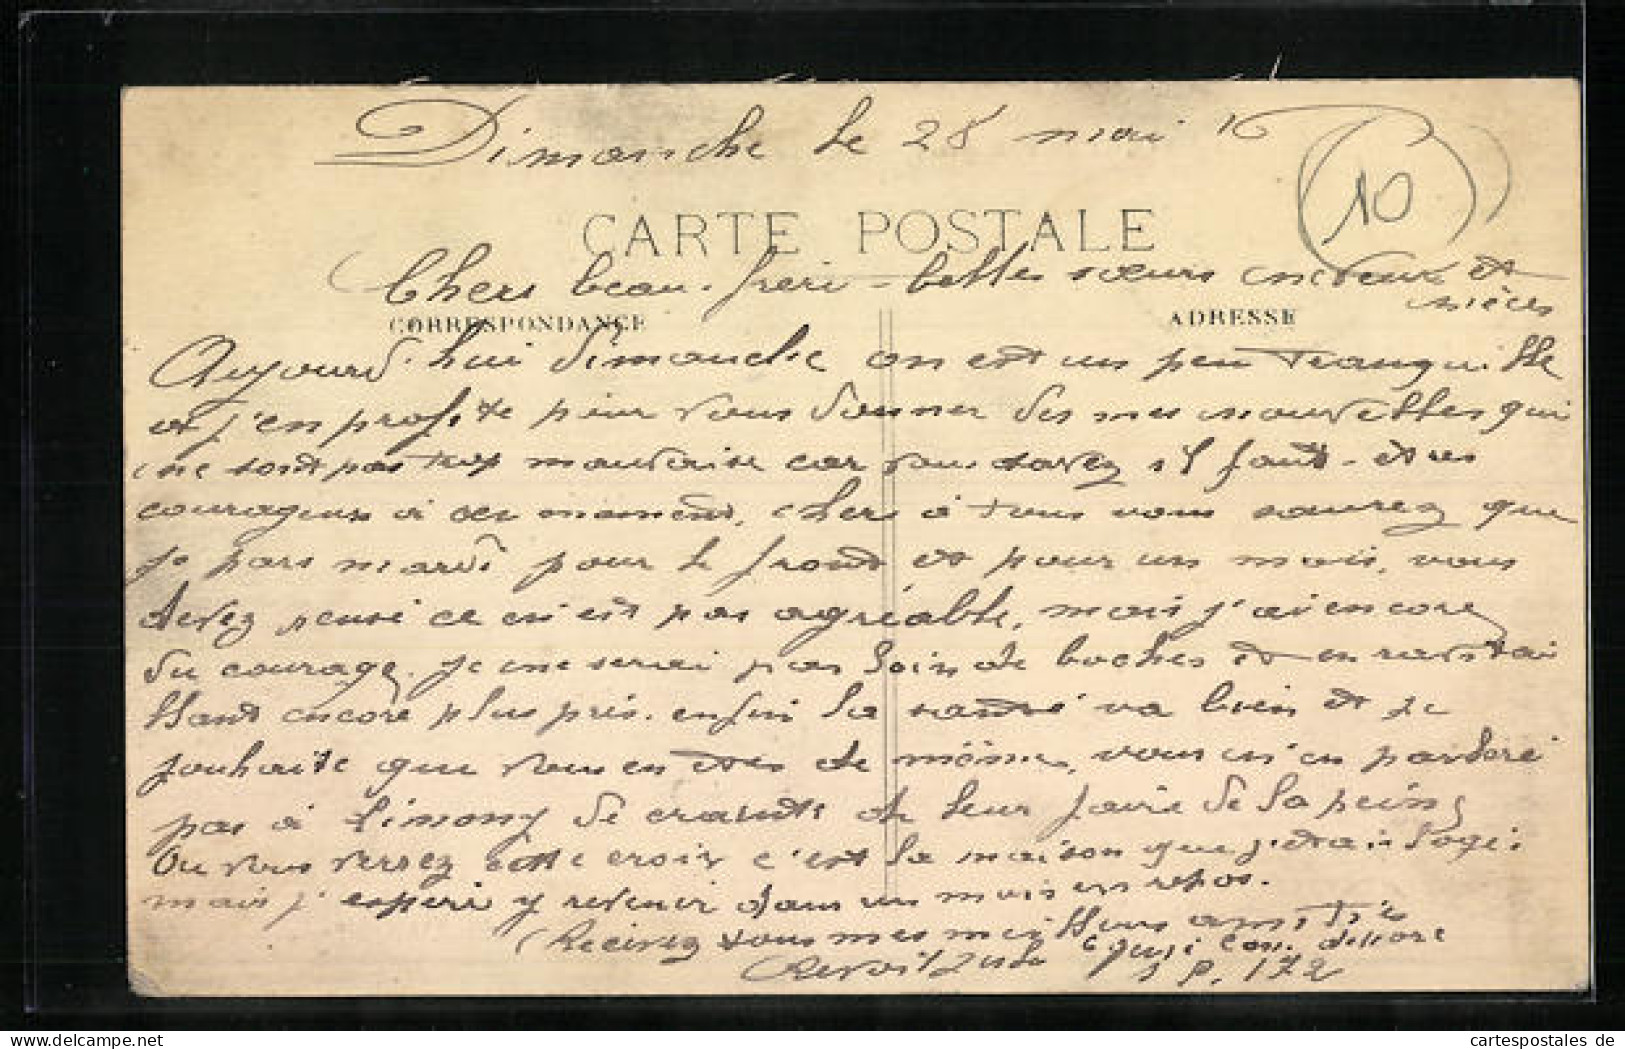 Dimanche le 28 mai 16
10
CARTE POSTALE
Chers beau-frère - belles sœurs neveux et
nièces
CORRESPONDANCE
ADRESSE
Aujourd'hui dimanche on est un peu tranquille
et j'en profite pour vous donner des mes nouvelles qui
ne sont pas trop mauvaise car vous savez s'il faut etres
courageux a ces moment, chers à tous vous saurez que
je pars mardi pour le front et pour un mois, vous
devez pensé ce n'est pas agréable, mais j'ai encore
du courage. je ne serai pas loin de boches et en ravitai
llant encore plus près. enfin la santé va bien et je
souhaite que vous en etes de même, vous n'en parlere
pas à Limony de crainte de leur faire de la peine
Ou vous verrez cette croix c'est la maison que j'etais logé
mais j'espère y revenir dans un mois en repos.
Recevez tous mes meilleurs amitiés
Revoil
S P. 172
cartespostales de
www.cartespostales.de